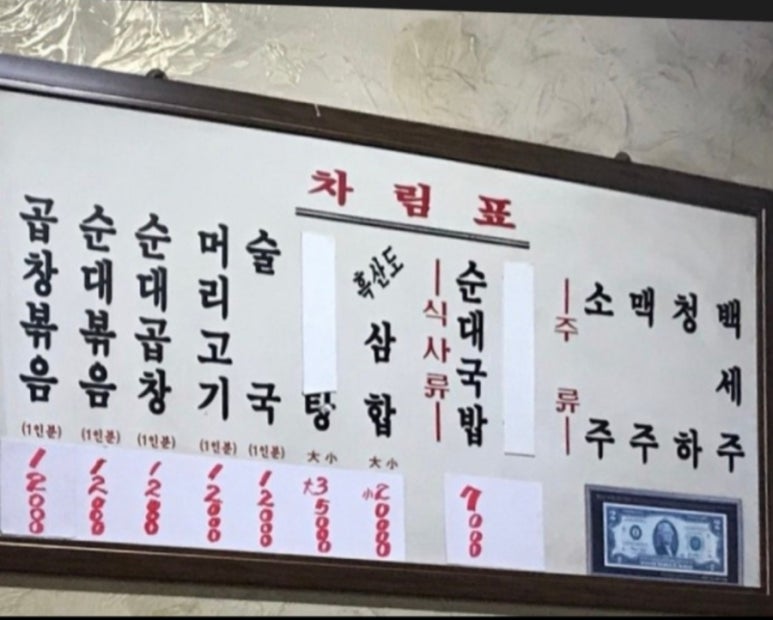 차림표
곱창볶음
(1인분)
12000
순대볶음
(1인분)
12000
순대곱창
(1인분)
12000
머리고기
(1인분)
12000
술국
(1인분)
12000
탕
大 小
大35000
흑산도
삼합
大 小
小20000
식사류
순대국밥
7000
주류
소주
맥주
청하
백세주
2
2